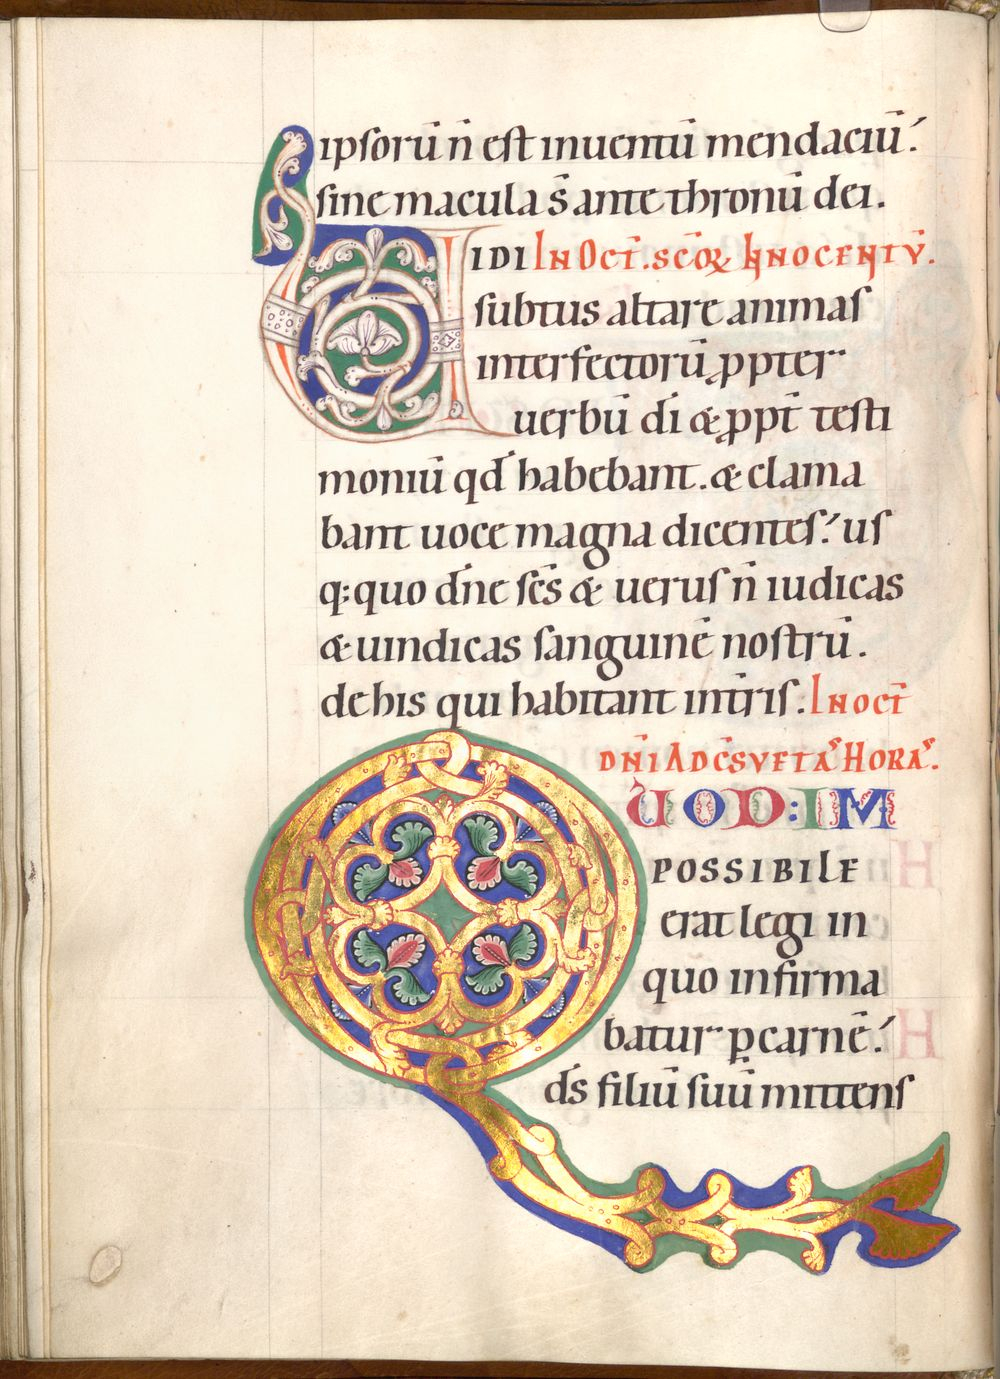 ipsorū n̄ est inuentū mendaciū.
sine macula s̄ ante thronū dei.
VIDI IN OCT̄. SC̄OꝜ INNOCENTŪ.
subtus altare animas
interfectorū ꝓpter
uerbū dī & ꝓpt̄ testi
moniū qd̄ habebant. & clama
bant uoce magna dicentes. us
q: quo dn̄e sc̄s & uerus n̄ iudicas
& uindicas sanguinē nostrū.
de his qui habitant in tr̄is. IN OCT̄
DN̄I AD C̄SVETAS HORAS.
QUOD: IM
POSSIBILE
erat legi in
quo infirma
batur ꝑ carnē.
ds̄ filiū suū mittens